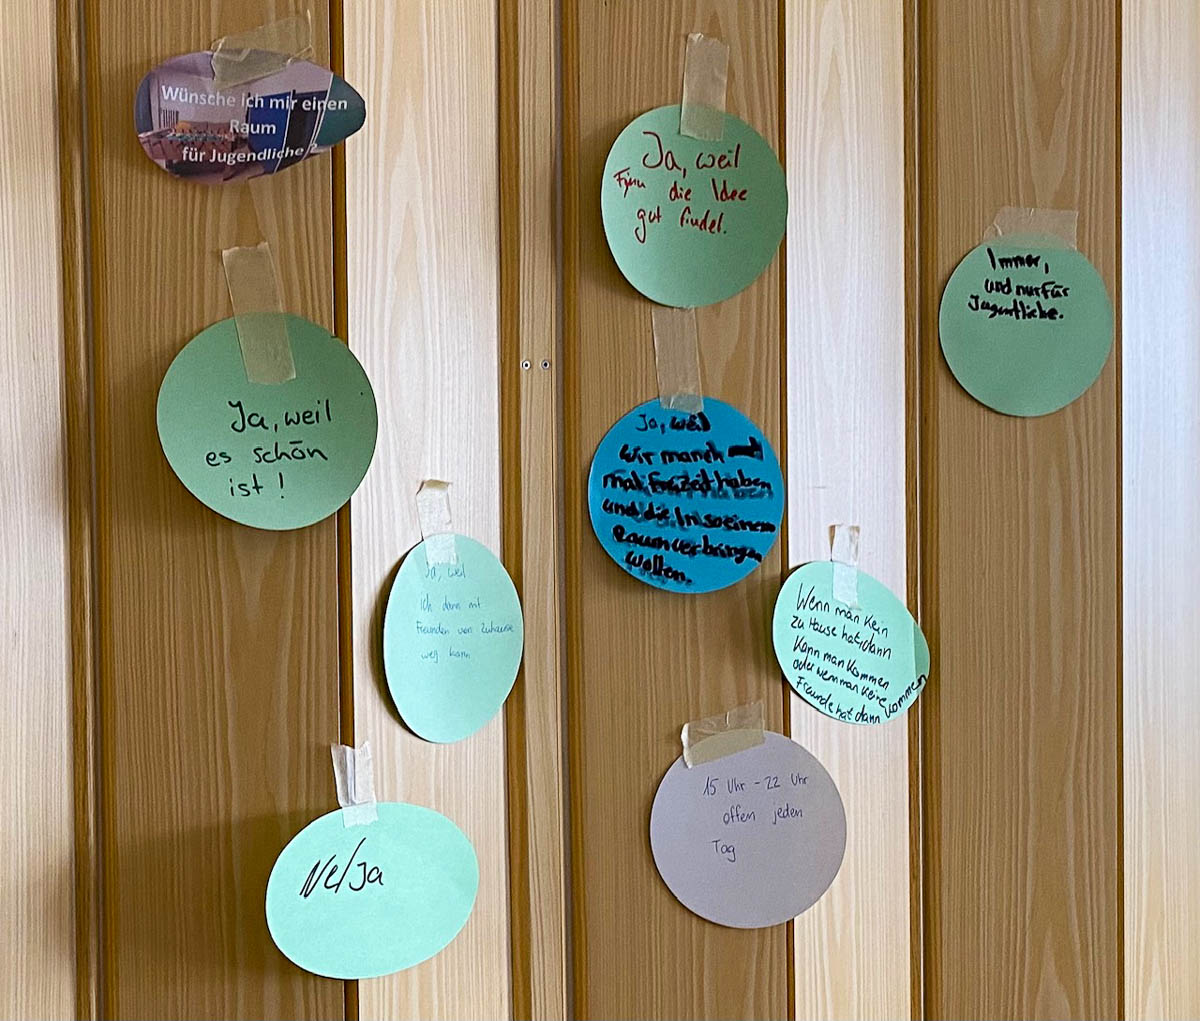 Wünsche ich mir einen
Raum
für Jugendliche ?
Ja, weil
es schön
ist !
Ja, weil
ich dann mit
Freunden von Zuhause
weg kann
Ne/Ja
Ja, weil
Fynn die Idee
gut findet.
Ja, weil
wir manch
mal Freizeit haben
und die In so einem
Raum verbringen
wollen.
15 Uhr - 22 Uhr
offen jeden
Tag
Wenn man Kein
zu Hause hat, dann
Kann man Kommen
oder wenn man Keine
Freunde hat dann Kommen
Immer,
und nur für